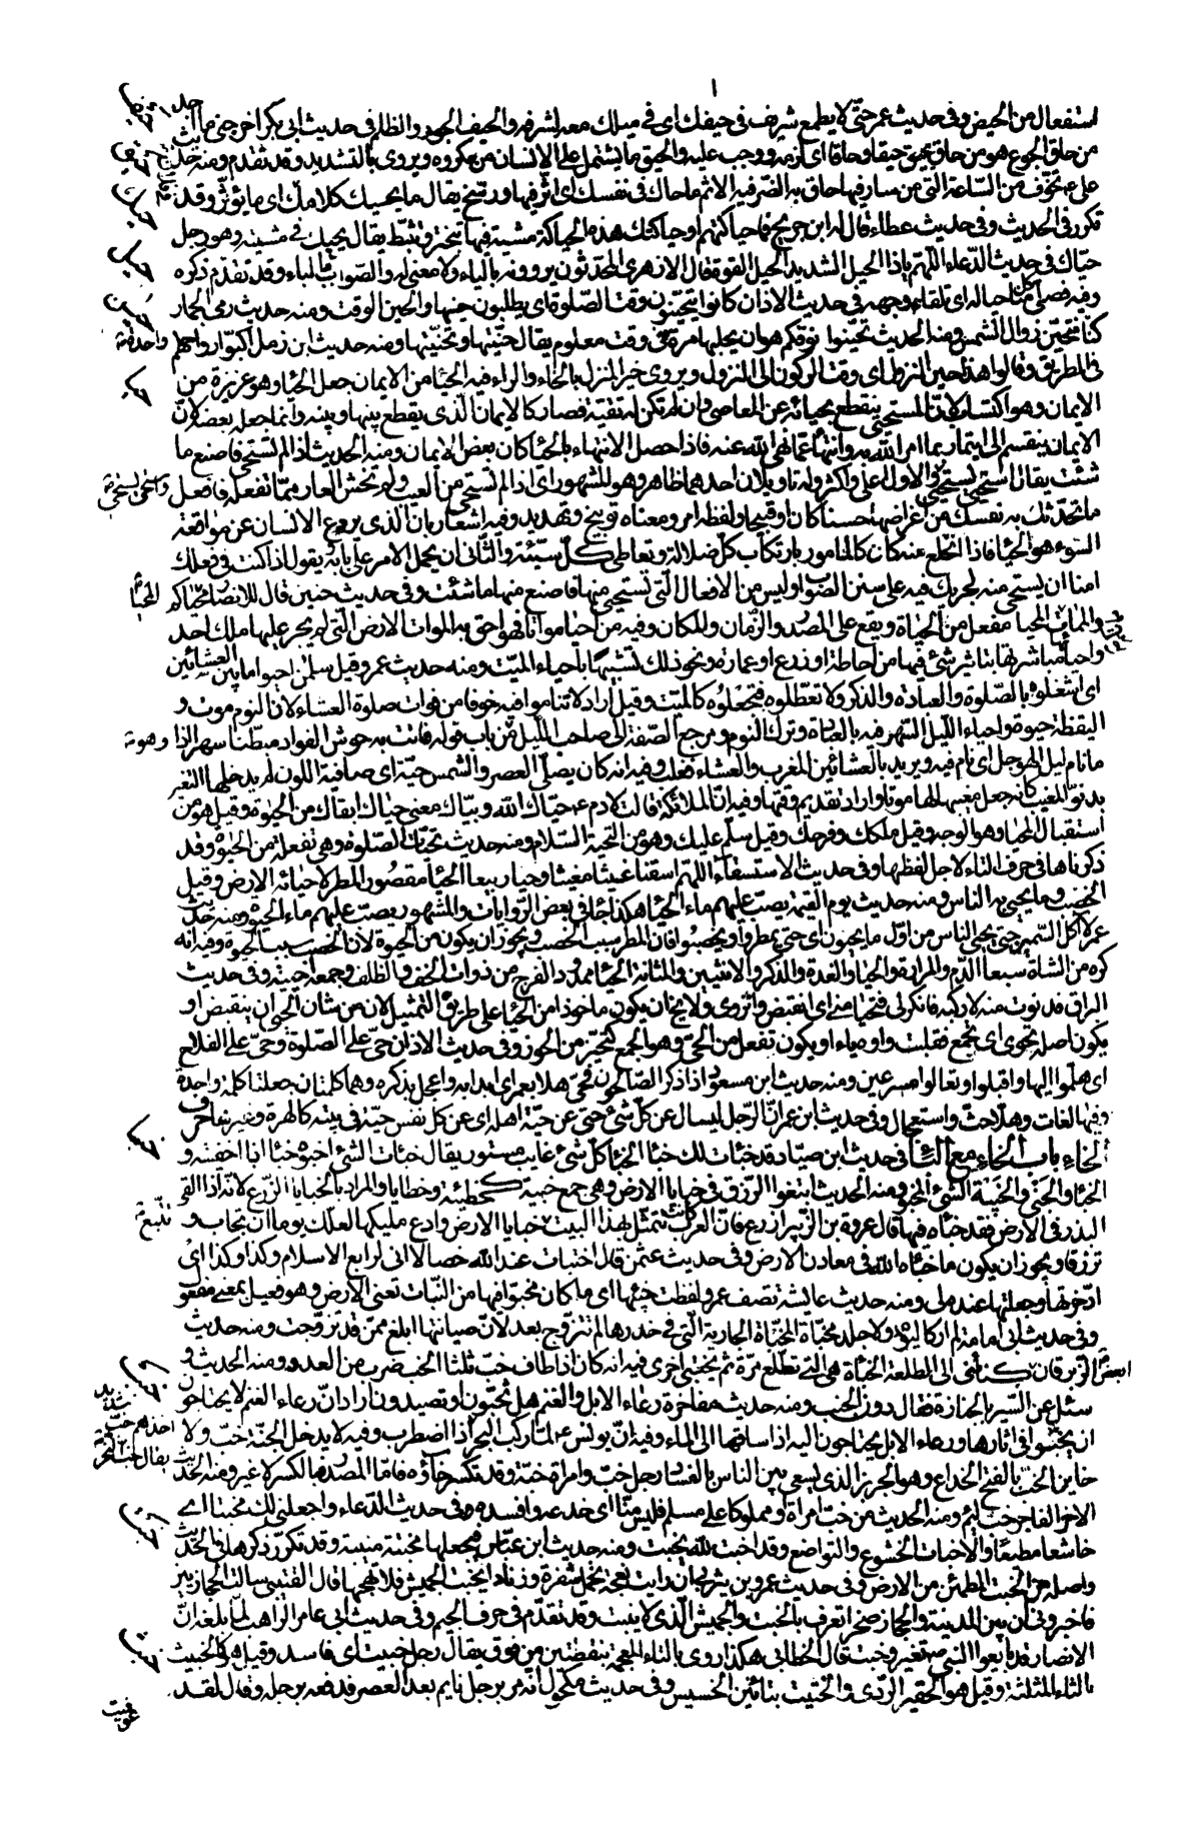 استفعال من الحيض وفى حديث عمر حتى لا يطمع شريف فى حيفك اى فى ميلك معه لشرفه والحيف الجور والظلم فى حديث ابى بكر اخرجنى ما اجد
من حاق الجوع هو من حاق يحيق حيقا وحاقا اى لزمه ووجب عليه والحيق ما يشتمل على الانسان من مكروه ويروى بالتشديد وقد تقدم ومنه حديث
على تخوف من الساعة التى من سار فيها حاق به الضر فيه الاثم ما حاك فى نفسك اى اثر فيها ورسخ يقال ما يحيك كلامك اى ما يؤثر وقد
تكرر فى الحديث وفى حديث عطاء قال له ابن جريج فما حياكتهم او حياكتكم هذه الحياكة مشية فيها تبختر وتثبط يقال يحيك فى مشيته وهو رجل
حياك فى حديث الدعاء اللهم يا ذا الحيل الشديد الحيل القوة قال الازهرى المحدثون يروونه بالباء ولا معنى له والصواب بالياء وقد تقدم ذكره
وفيه فصلى كل منا حياله اى تلقاء وجهه فى حديث الاذان كانوا يتحينون وقت الصلوة اى يطلبون حينها والحين الوقت ومنه حديث رمى الجمار
كنا نتحين زوال الشمس ومنه الحديث تحينوا نوقكم هو ان يحلبها مرة فى وقت معلوم يقال حينتها وتحينتها ومنه حديث ابن زمل اكبوا رواحلهم
فى الطريق وقالوا هذا حين المنزل اى وقت الركون الى النزول ويروى خير المنزل بالخاء والراء فيه الحياء من الايمان جعل الحياء وهو غريزة من
الايمان وهو اكتساب لان المستحيى ينقطع بحيائه عن المعاصى وان لم تكن له تقية فصار كالايمان الذى يقطع بينها وبينه وانما جعله بعضه لان
الايمان ينقسم الى ايتمار بما امر الله به وانتهاء عما نهى الله عنه فاذا حصل الانتهاء بالحياء كان بعض الايمان ومنه الحديث اذا لم تستحى فاصنع ما
شئت يقال استحيى يستحيى والاول اعلى واكثر وله تاويلان احدهما ظاهر وهو المشهور اى اذا لم تستحى من العيب ولم تخش العار مما تفعله فافعل
ما تحدثك به نفسك من اغراضها حسنا كان او قبيحا ولفظه امر ومعناه توبيخ وتهديد وفيه اشعار بان الذى يردع الانسان عن مواقعة
السوء هو الحياء فاذا انخلع عنه كان كالمامور بارتكاب كل ضلالة وتعاطى كل سيئة والثانى ان يحمل الامر على بابه يقول اذا كنت فى فعلك
امنا ان يستحيى منه لجريك فيه على سنن الصواب وليس من الافعال التى تستحيى منها فاصنع منها ما شئت وفى حديث حنين قال للانصار محياكم
والممات المحيا مفعل من الحياة ويقع على المصدر والزمان والمكان وفيه من احيا مواتا فهو احق به الموات الارض التى لم يجر عليها ملك احد
واحياؤها مباشرتها بتاثير شئ فيها من احاطة او زرع او عمارة ونحو ذلك تشبيها باحياء الميت ومنه حديث عمر وقيل سلمان احيوا ما بين العشائين
اى اشغلوه بالصلوة والعبادة والذكر ولا تعطلوه فتجعلوه كالميت وقيل اراد لا تناموا فيه خوفا من فوات صلوة العشاء لان النوم موت و
اليقظة حيوة واحياء الليل السهر فيه بالعبادة وترك النوم ومرجع الصفة الى صاحب الليل من باب قوله فاتت به حوش الفواد مبطنا سهدا اذا
ما نام ليل الهوجل اى نام فيه ويريد بالعشائين المغرب والعشاء فغلب وفيه انه كان يصلى العصر والشمس حية اى صافية اللون لم يدخلها التغير
بدنو المغيب كانه جعل مغيبها لها موتا واراد تقديم وقتها وفيه ان الملائكة قالت لادم حياك الله وبياك معنى حياك ابقاك من الحيوة وقيل هو من
استقبال المحيا وهو الوجه وقيل ملكك وفرحك وقيل سلم عليك وهو من التحية السلام ومنه حديث تحيات الصلوة وهى تفعلة من الحيوة وقد
ذكرناها فى حرف التاء لاجل لفظها وفى حديث الاستسقاء اللهم اسقنا غيثا مغيثا وحيا ربيعا الحيا مقصور المطر لاحيائه الارض وقيل
الخصب وما يحيى به الناس ومنه حديث يوم القيمة يصب عليهم ماء الحيا هكذا جاء فى بعض الروايات والمشهور يصب عليهم ماء الحيوة ومنه حديث
عمر لا اكل السمين حتى يحيى الناس من اول ما يحيون اى حتى يمطروا ويخصبوا فان المطر سبب الخصب ويجوز ان يكون من الحيوة لان الخصب سبب الحيوة وفيه انه
كره من الشاة سبعا الدم والمرارة والحياء والغدة والذكر والانثيين والمثانة الحياء ممدود الفرج من ذوات الخف والظلف وجمعه احيية وفى حديث
البراق فدنوت منه لاركبه فانكرنى فتحيا منى اى انقبض وانزوى ولا يخ ان يكون ماخوذا من الحياء على طريق التمثيل لان من شان الحيى ان ينقبض او
يكون اصله تحوى اى تجمع فقلبت واوه ياء او يكون تفعل من الحى وهو الجمع كتحيز من الحوز وفى حديث الاذان حى على الصلوة وحى على الفلاح
اى هلموا اليها واقبلوا وتعالوا مسرعين ومنه حديث ابن مسعود اذا ذكر الصالحون فحى هلا بعمر اى ابدا به واعجل بذكره وهما كلمتان جعلتا كلمة واحدة
وفيها لغات وهلا حث واستعجال وفى حديث ابن عمر ان الرجل ليسال عن كل شئ حتى عن حية اهله اى عن كل نفس حية فى بيته كالهرة وغيرها حرف
الخاء باب الخاء مع الباء فى حديث ابن صياد قد خبات لك خبا الخبء كل شئ غايب مستور يقال خبات الشئ اخبؤه خبئا اذا اخفيته و
الخبء والخبى والخبيئة الشئ المخبو ومنه الحديث ابتغوا الرزق فى خبايا الارض وهى جمع خبيئة كخطيئة وخطايا والمراد بالخبايا الزرع لانه اذا القى
البذر فى الارض فقد خباه فيها قال عروة بن الزبير ازرع فان العرب كانت تتمثل بهذا البيت تتبع خبايا الارض وادع مليكها لعلك يوما ان تجاب و
ترزقا ويجوز ان يكون ما خباه الله فى معادن الارض وفى حديث عثمن قال اختبات عند الله خصالا انى لرابع الاسلام وكذا وكذا اى
ادخرتها وجعلتها عنده لى ومنه حديث عايشة تصف عمر ولفظت خبيئها اى ما كان مخبوا فيها من النبات تعنى الارض وهو فعيل بمعنى مفعول
وفى حديث ابى امامة لم ار كاليوم ولا جلد مخباة المخباة الجارية التى فى خدرها لم تتزوج بعد لان صيانتها ابلغ ممن قد تزوجت ومنه حديث
الزبرقان ابغض كنائنى الى الطلعة الخباة هى التى تطلع مرة ثم تختبى اخرى فيه انه كان اذا طاف خب ثلثا الخب ضرب من العدو ومنه الحديث و
سئل عن السير بالجنازة فقال دون الخبب ومنه حديث مفاخرة رعاء الابل والغنم هل تخبون او تصيدون اراد ان رعاء الغنم لا يحتاجون
ان يخبوا فى اثارها ورعاء الابل يحتاجون اليه اذا ساقوها الى الماء وفيه ان يونس لما ركب البحر اذا اضطرب وفيه لا يدخل الجنة خب ولا
خاين الخب بالفتح الخداع وهو الجربز الذى يسعى بين الناس بالفساد رجل خب وامراة خبة وقد تكسر خاؤه فاما المصدر فبالكسر لا غير ومنه الحديث
الاخر الفاجر خب لئيم ومنه الحديث من خبب امراة او مملوكا على مسلم فليس منا اى خدعه وافسده وفى حديث الدعاء واجعلنى لك مخبتا اى
خاشعا مطيعا والاخبات الخشوع والتواضع وقد اخبت لله يخبت ومنه حديث ابن عباس فيجعلها مخبتة منيبة وقد تكرر ذكرها فى الحديث
واصله من الخبت المطمئن من الارض وفى حديث عمرو بن يثربى ان رايت نعجة تحمل شفرة وزنادا بخبت الجميش فلا تهجها قال القتيبى سالت الحجازيين
فاخبرونى ان بين المدينة والحجاز صحراء تعرف بالخبت والجميش الذى لا ينبت وقد تقدم فى حرف الجيم وفى حديث ابى عامر الراهب لما بلغه ان
الانصار قد بايعوا النبى ص تغير وخبت قال الخطابى هكذا روى بالتاء المعجمة بنقطتين من فوق يقال رجل خبيت اى فاسد وقيل هو كالخبيث
بالثاء المثلثة وقيل هو الحقير الردى والختيت بتائين الخسيس وفى حديث مكحول انه مر برجل نايم بعد العصر فدفعه برجله وقال لقد
عوفيت